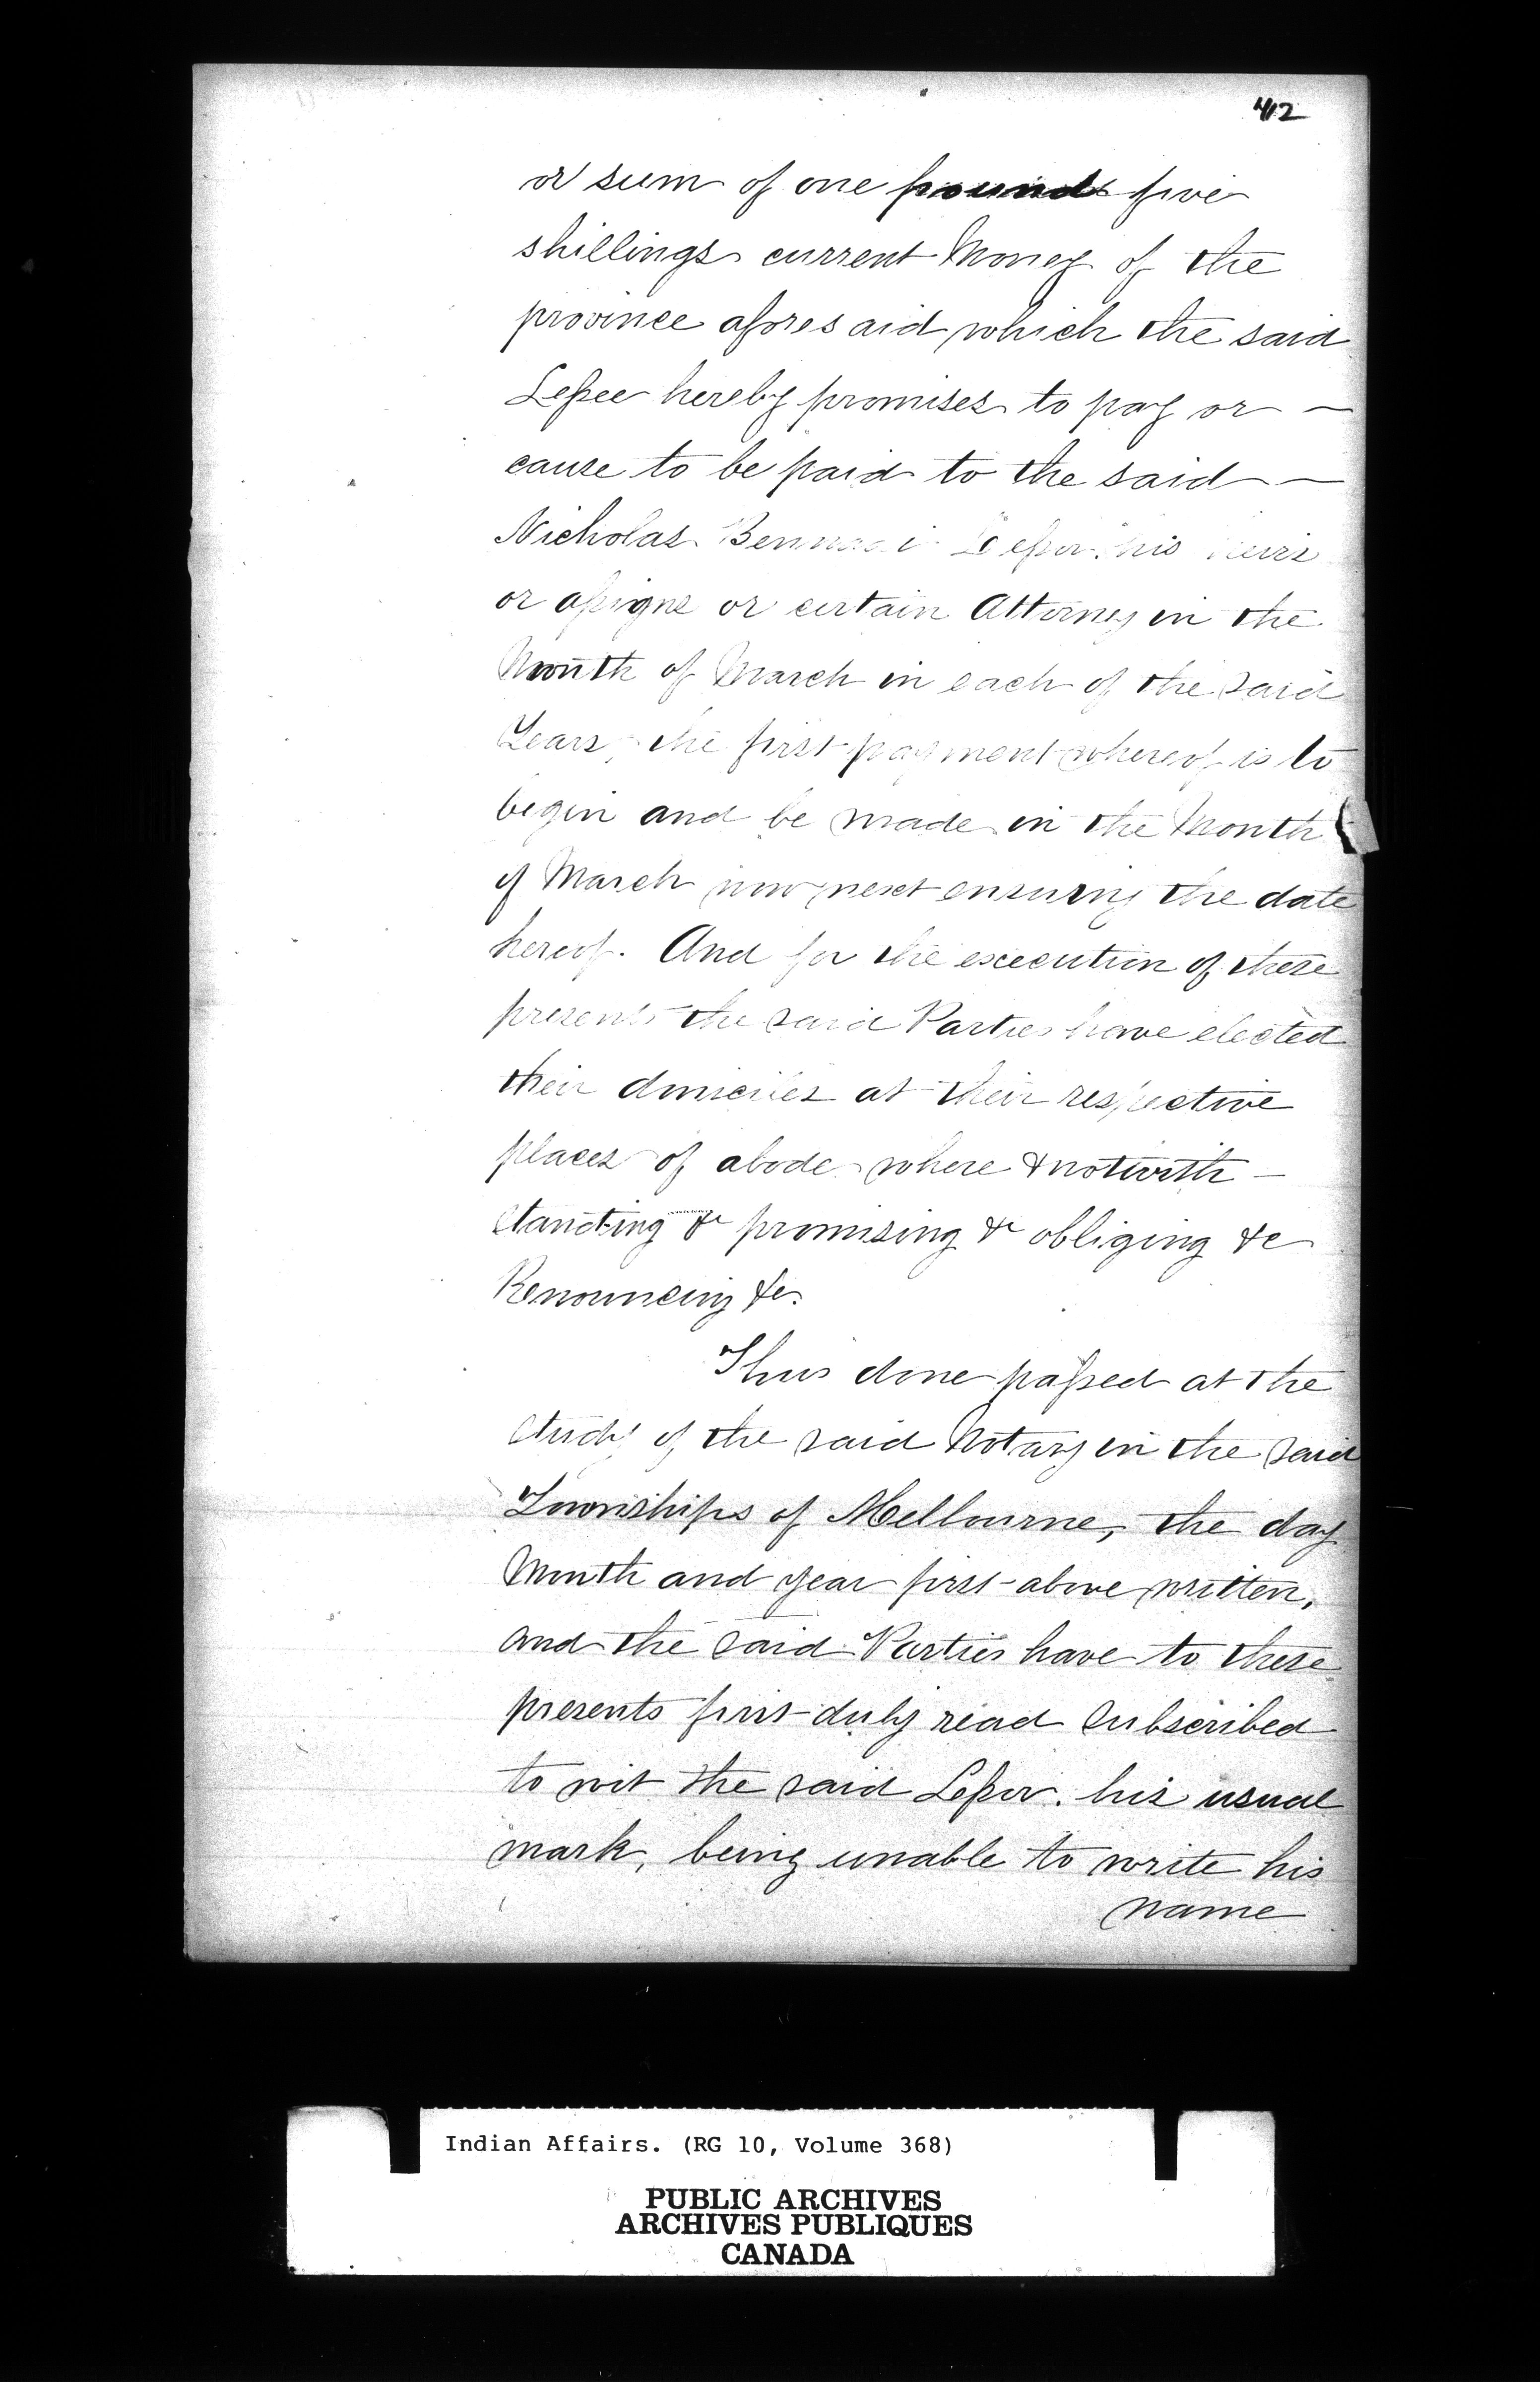 412
or sum of one pounds five
shillings current Money of the
province aforesaid which the said
Lessee hereby promises to pay or —
cause to be paid to the said —
Nicholas Lessor his heirs
or assigns or certain Attorney in the
Month of March in each of the said
Years, the first payment whereof is to
begin and be made in the Month
of March now next ensuing the date
hereof. And for the execution of these
presents the said Parties have elected
their domiciles at their respective
places of abode where & notwith—
standing &c promising &c obliging &c
Renouncing &c.
Thus done passed at the
study of the said Notary in the said
Townships of Melbourne, the day
Month and year first above written,
and the said Parties have to these
presents first duly read subscribed
to wit the said Lessor. his usual
mark, being unable to write his
name
Indian Affairs. (RG 10, Volume 368)
PUBLIC ARCHIVES
ARCHIVES PUBLIQUES
CANADA